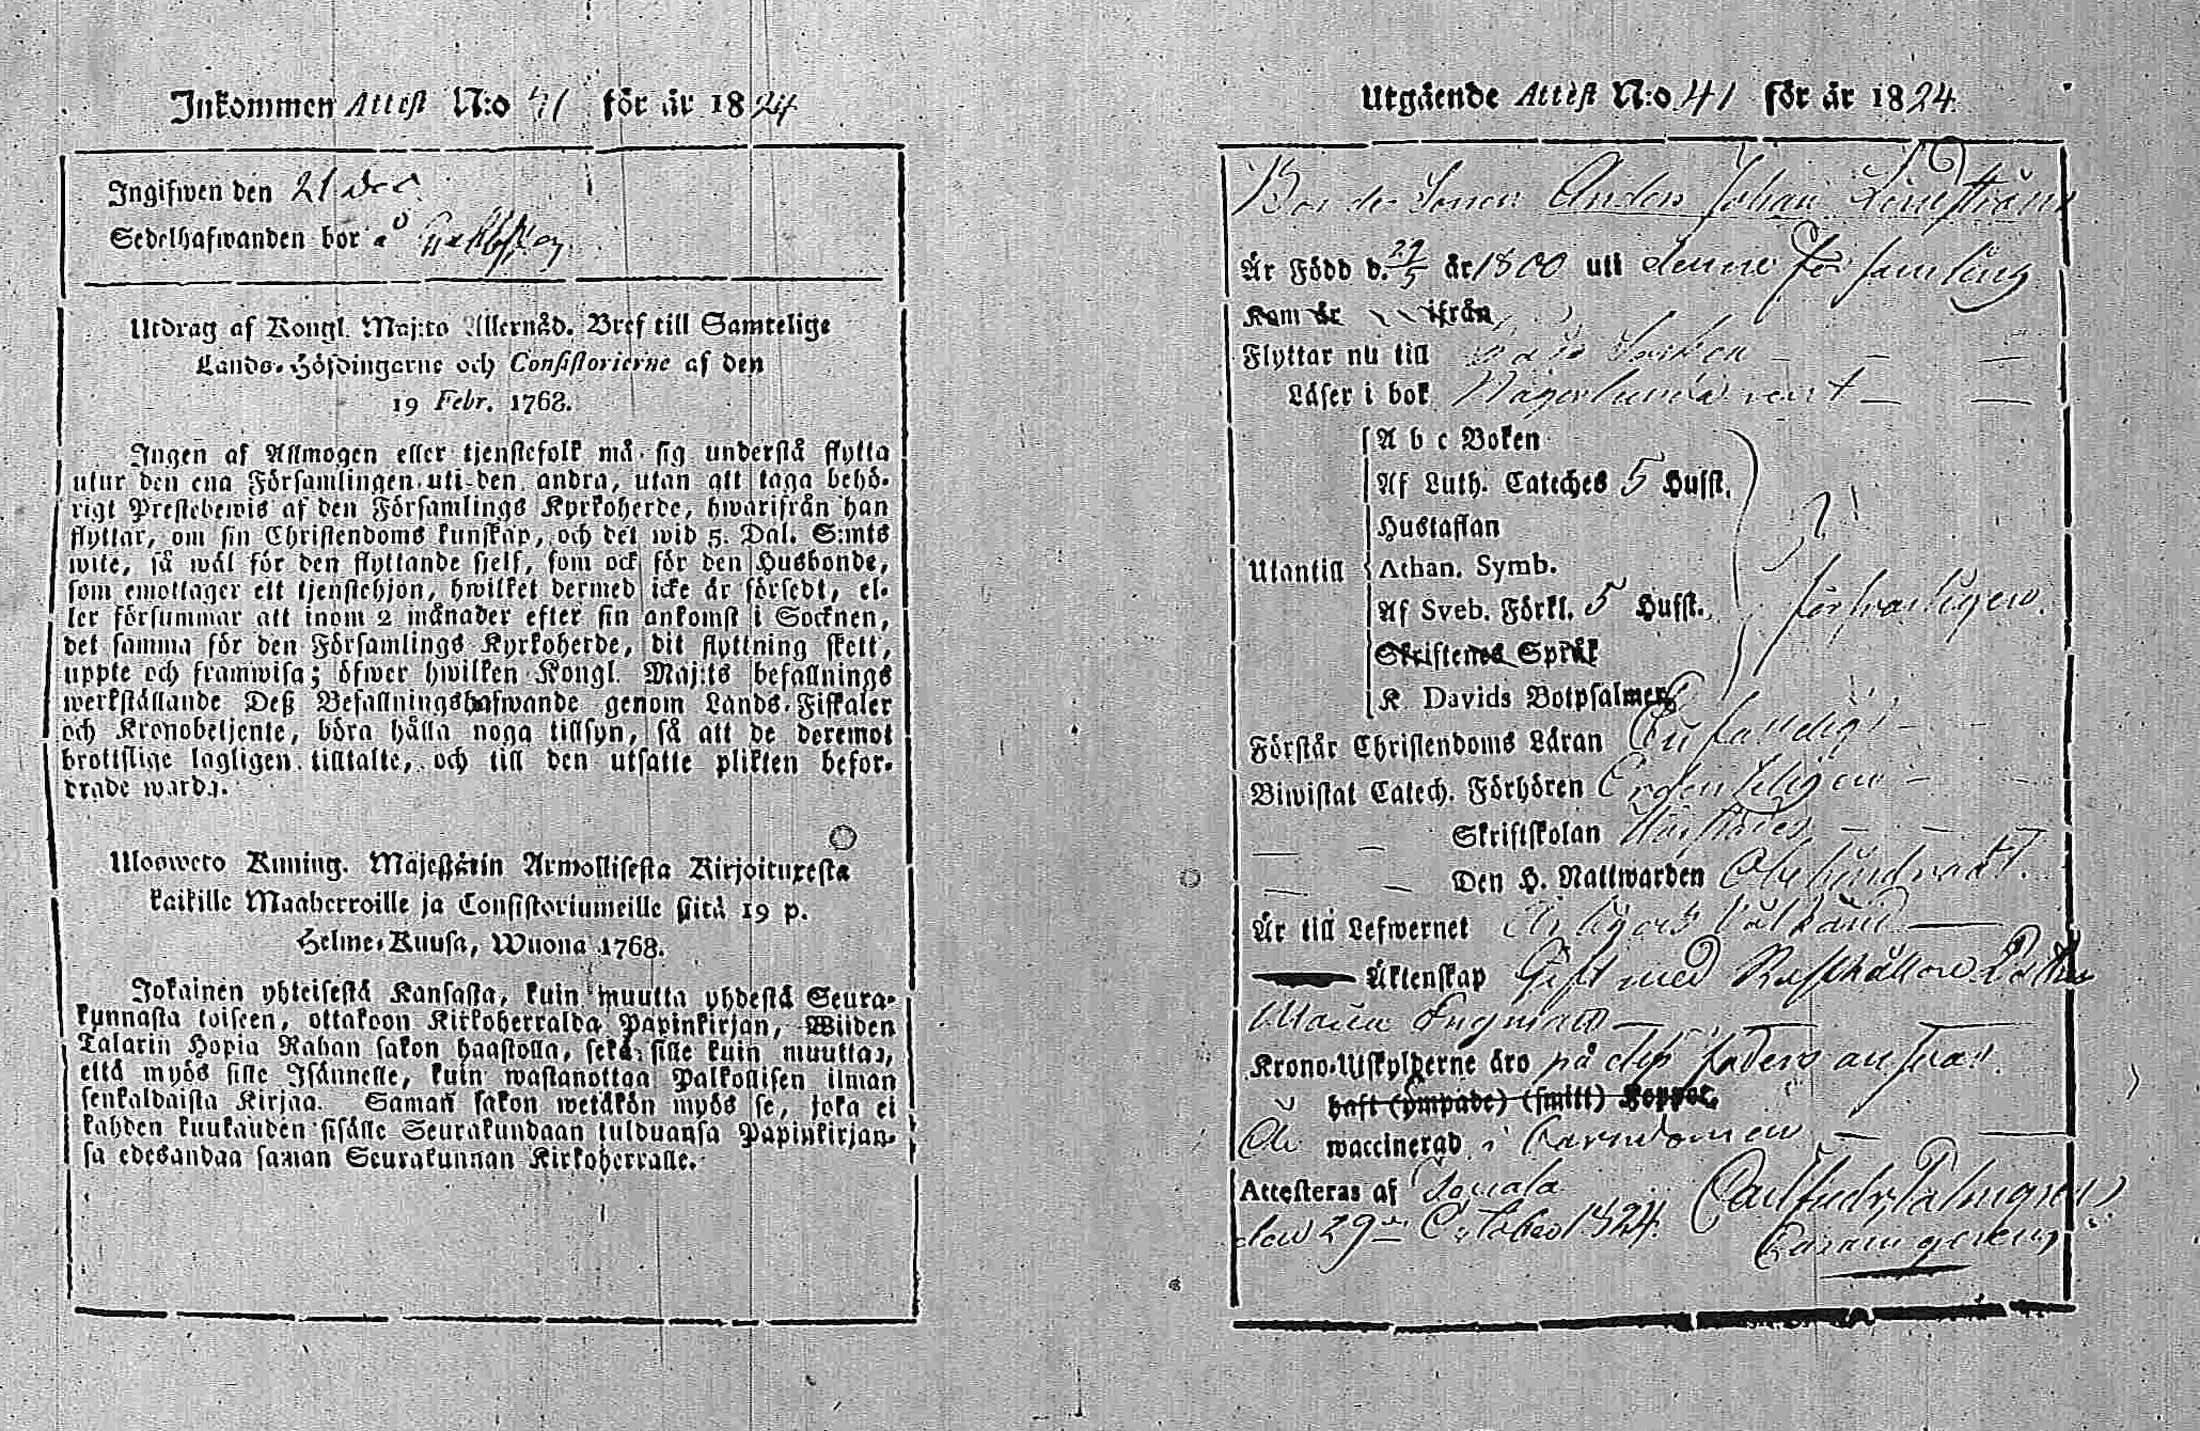 Inkommen Attest N:o 41 för år 1824
Ingifwen den 21 Dec
Sedelhafwanden bor å
Utdrag af Kongl. Maj:ts Allernåd. Bref till Samtelige
Lands-Höfdingarne och Consistorierne af den
19 Febr. 1768.
Ingen af Allmogen eller tjenstefolk må sig understå flytta
utur den ena Församlingen uti den andra, utan att taga behö-
rigt Prestebewis af den Församlings Kyrkoherde, hwarifrån han
flyttar, om sin Christendoms kunskap, och det wid 5. Dal. S:mts
wite, så wäl för den flyttande sjelf, som ock för den Husbonde,
som emottager ett tjenstehjon, hwilket dermed icke är försedt, el-
ler försummar att inom 2 månader efter sin ankomst i Socknen,
det samma för den Församlings Kyrkoherde, dit flyttning skett,
uppte och framwisa; öfwer hwilken Kongl. Maj:ts befallnings
werkställande Deß Befallningshafwande genom Lands-Fiskaler
och Kronobetjente, böra hålla noga tillsyn, så att de deremot
brottslige lagligen tilltalte, och till den utsatte plikten befor-
drade warda.
Ulosweto Kuning. Majestätin Armollisesta Kirjoituxesta
kaikille Maaherroille ja Consistoriumeille siitä 19 p.
Helme-Kuusa, Wuona 1768.
Jokainen yhteisestä Kansasta, kuin muutta yhdestä Seura-
kunnasta toiseen, ottakoon Kirkoherralda Papinkirjan, Wiiden
Talarin Hopia Rahan sakon haastolla, sekä sille kuin muuttaa,
että myös sille Isännelle, kuin wastanottaa Palkollisen ilman
senkaldaista Kirjaa. Saman sakon wetäkön myös se, joka ei
kahden kuukauden sisälle Seurakundaan tulduansa Papinkirjan-
sa edesandaa saman Seurakunnan Kirkoherralle.
Utgående Attest N:o 41 för år 1824.
Anders Johan Lindström
Är Född d. 29/5 år 1800 uti denne Församling
Kom år ifrån
Flyttar nu till
Läser i bok
A b c Boken
Af Luth. Cateches 5 Hufst.
Hustaflan
Utantill Athan. Symb.
Af Sveb. Förkl. 5 Hufst.
försvarligen.
Skriftenes Språk
K. Davids Botpsalmer
Förstår Christendoms Läran
Biwistat Catech. Förhören Ordentligen
Skriftskolan
Den H. Nattwarden Obehindradt.
Är till Lefwernet
Äktenskap Gift med
Maria Ingman
Krono-Utskylderne äro på deß faders ansvar.
haft (ympade) (smitt) Koppor,
Är waccinerad i barndomen
Attesteras af Pojala
den 29 October 1824.